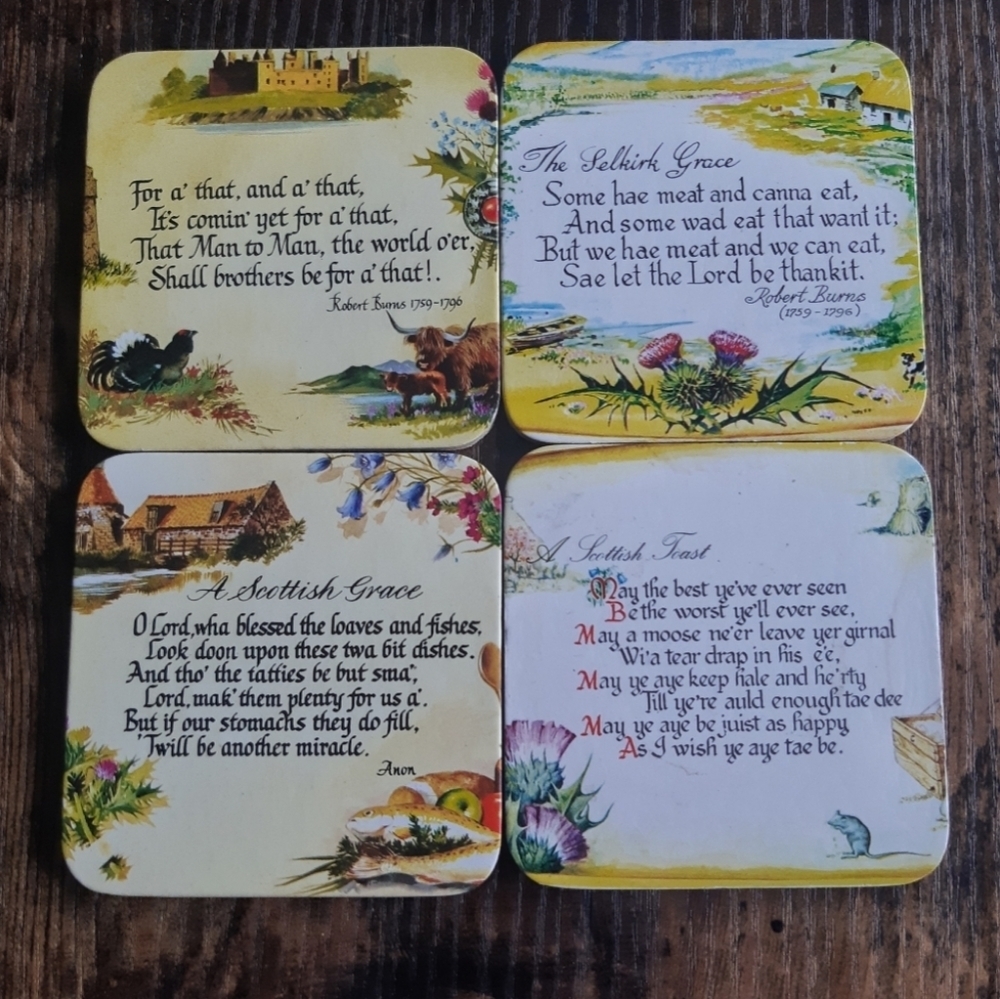 For a' that, and a' that,
It's comin' yet for a' that,
That Man to Man, the world o'er,
Shall brothers be for a' that!.
Robert Burns 1759-1796
The Selkirk Grace
Some hae meat and canna eat,
And some wad eat that want it;
But we hae meat and we can eat,
Sae let the Lord be thankit.
Robert Burns
(1759-1796)
A Scottish Grace
O Lord, wha blessed the loaves and fishes,
Look doon upon these twa bit dishes.
And tho' the tatties be but sma',
Lord, mak' them plenty for us a'.
But if our stomachs they do fill,
'Twill be another miracle.
Anon
A Scottish Toast
May the best ye've ever seen
Be the worst ye'll ever see,
May a moose ne'er leave yer girnal
Wi'a tear drap in his e'e,
May ye aye keep hale and he'rty
Till ye're auld enough tae dee
May ye aye be juist as happy
As I wish ye aye tae be.